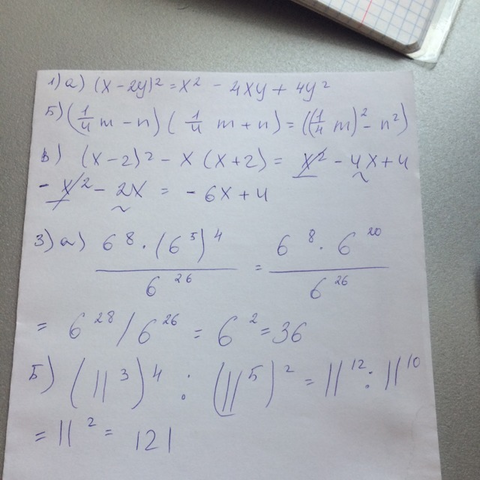 1) а) (x - 2y)² = x² - 4xy + 4y²
Б) (1/4 m - n) ( 1/4 m + n) = ((1/4 m)² - n²)
в) (x - 2)² - x (x + 2) = x² - 4x + 4
- x² - 2x = - 6x + 4
3) а) 6⁸ · (6⁵)⁴ / 6²⁶ = 6⁸ · 6²⁰ / 6²⁶
= 6²⁸ / 6²⁶ = 6² = 36
Б) (11³)⁴ : (11⁵)² = 11¹² : 11¹⁰
= 11² = 121